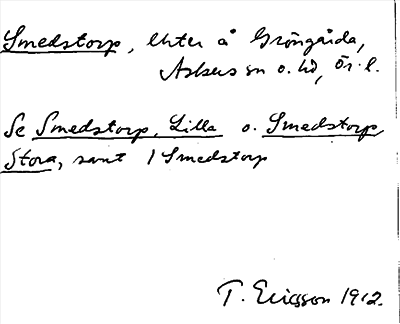 Smedstorp, Enter å Gröngårda,
Askers sn o. hd, Ör. l.
Se Smedstorp, Lilla o. Smedstorp,
Stora, samt 1 Smedstorp
T. Ericsson 1912.